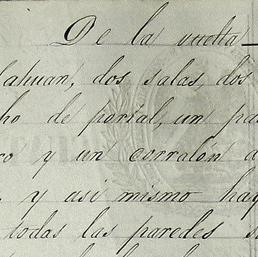 De la vuelta
cahuan, dos salas, dos
ho de portal, un pa
ro y un corralón a
y asi mismo hay
todas las paredes s